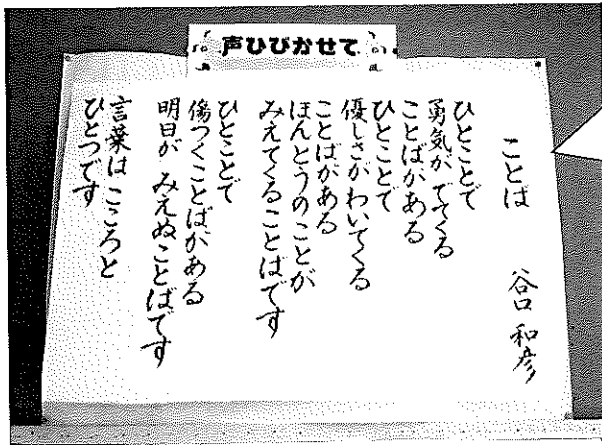 声ひびかせて
ことば
谷口 和彦
ひとことで
勇気が でてくる
ことばがある
ひとことで
優しさがわいてくる
ことばがある
ほんとうのことが
みえてくることばです
ひとことで
傷つくことばがある
明日が みえぬことばです
言葉は こころと
ひとつです